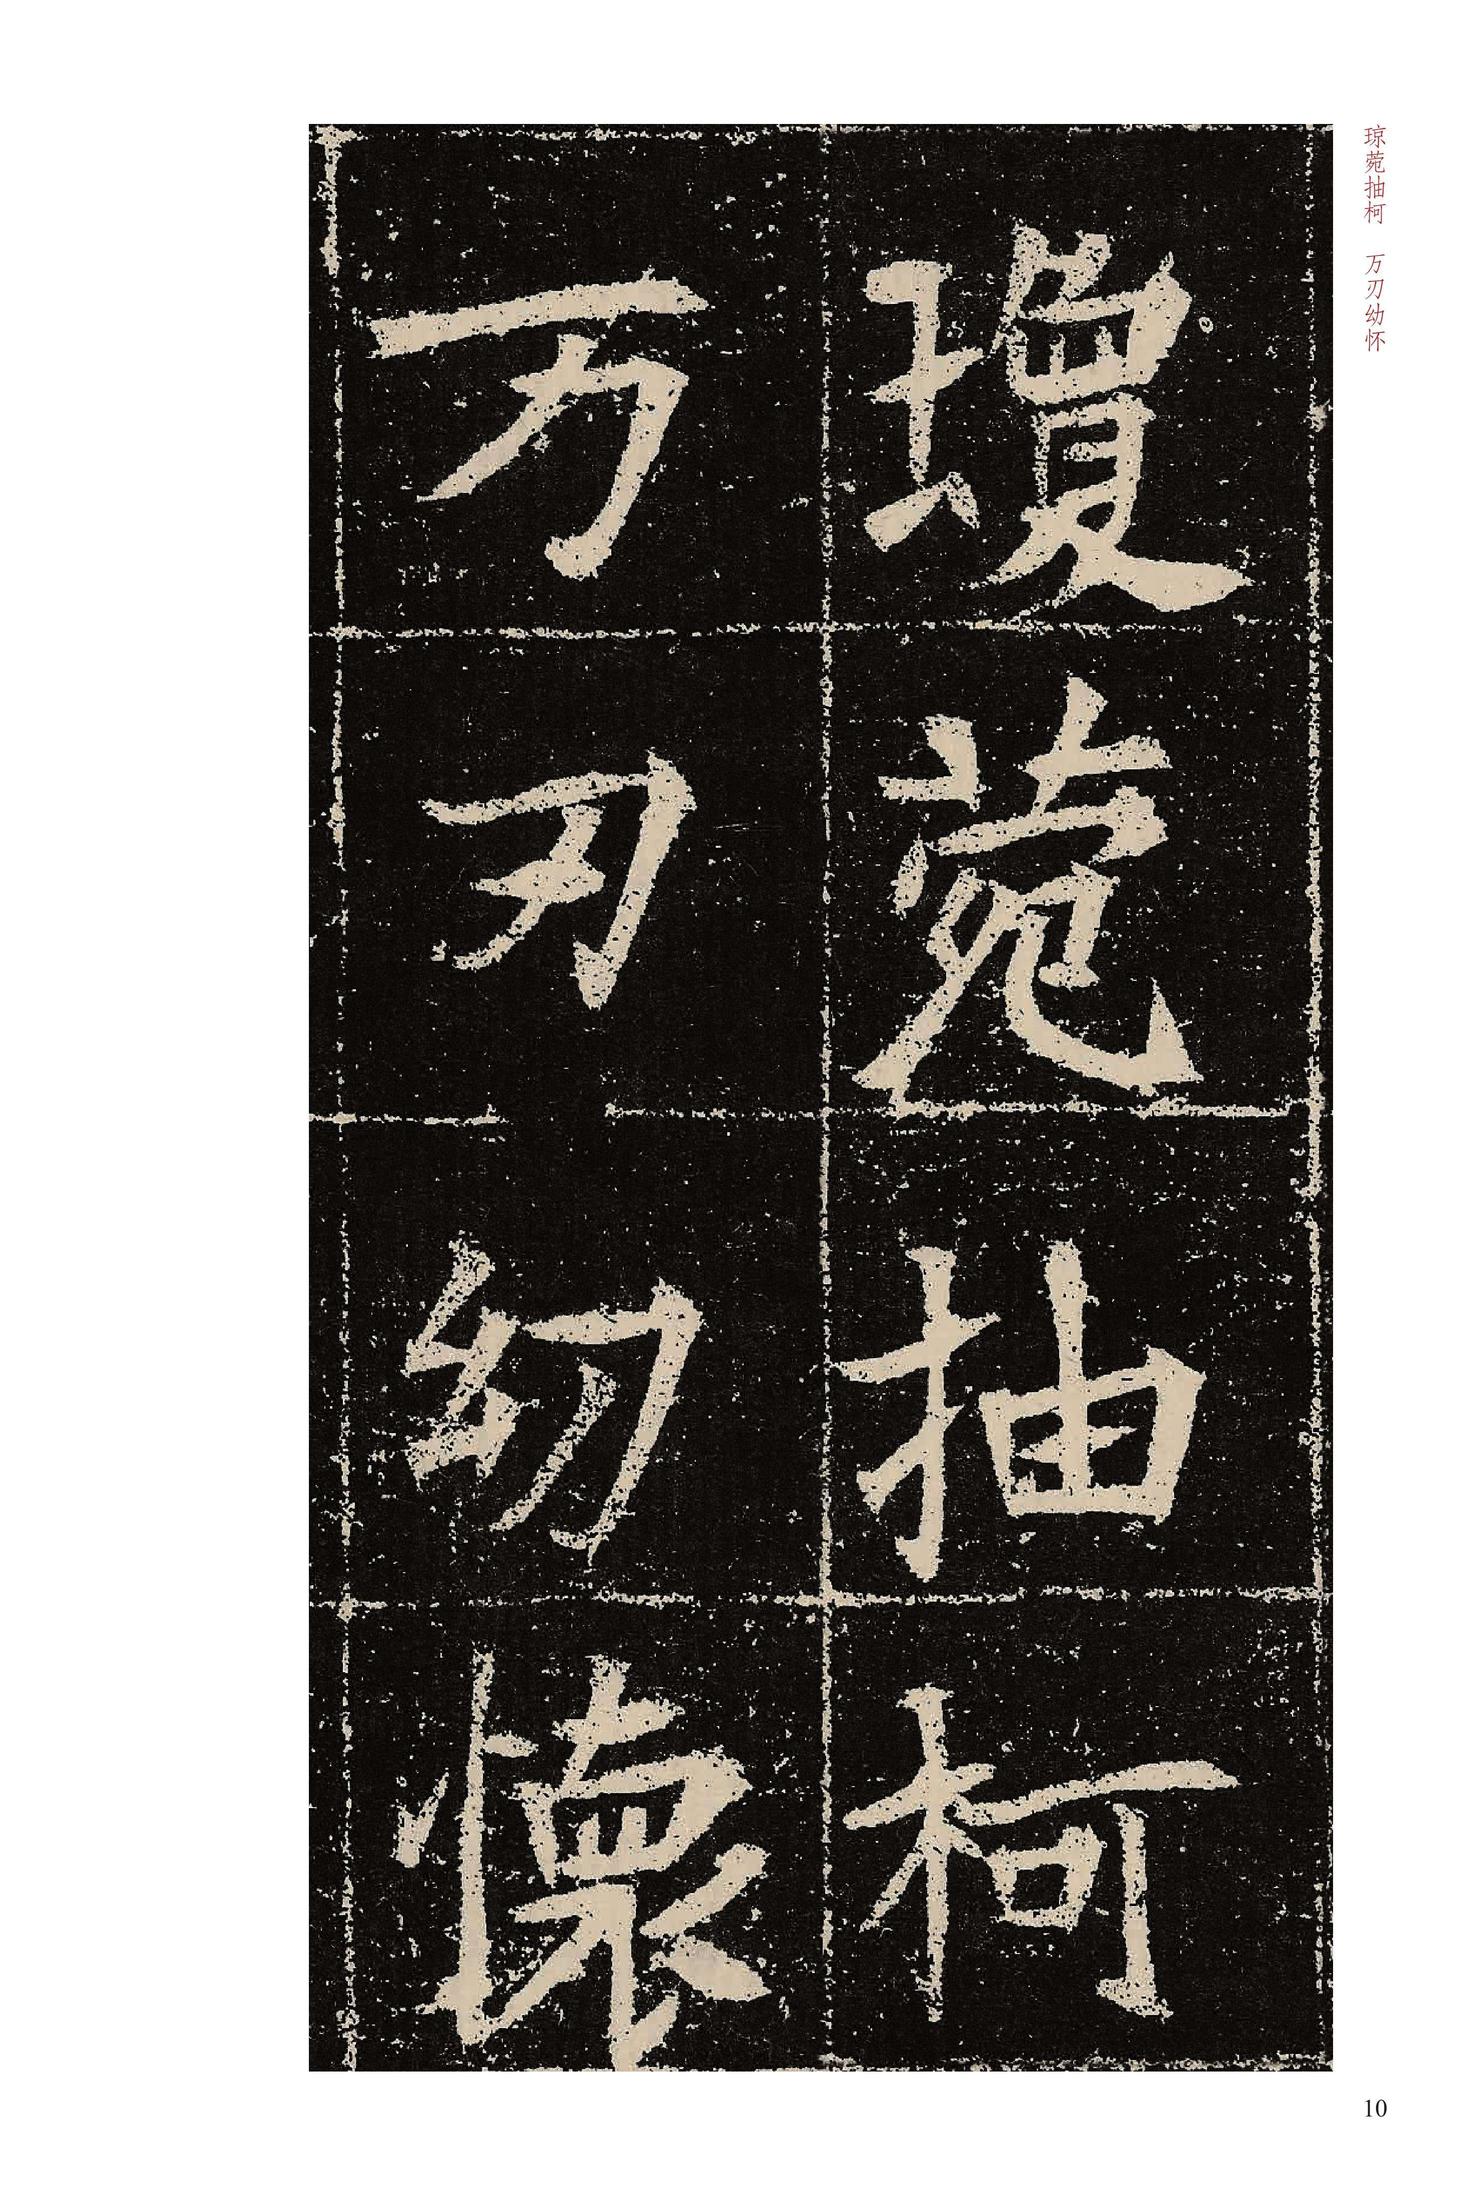 琼菀抽柯 万刃幼怀
瓊菀抽柯
万刃幼懷
10